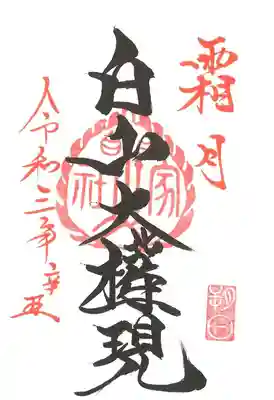 霜月
白山大権現
令和三年辛丑
朔日